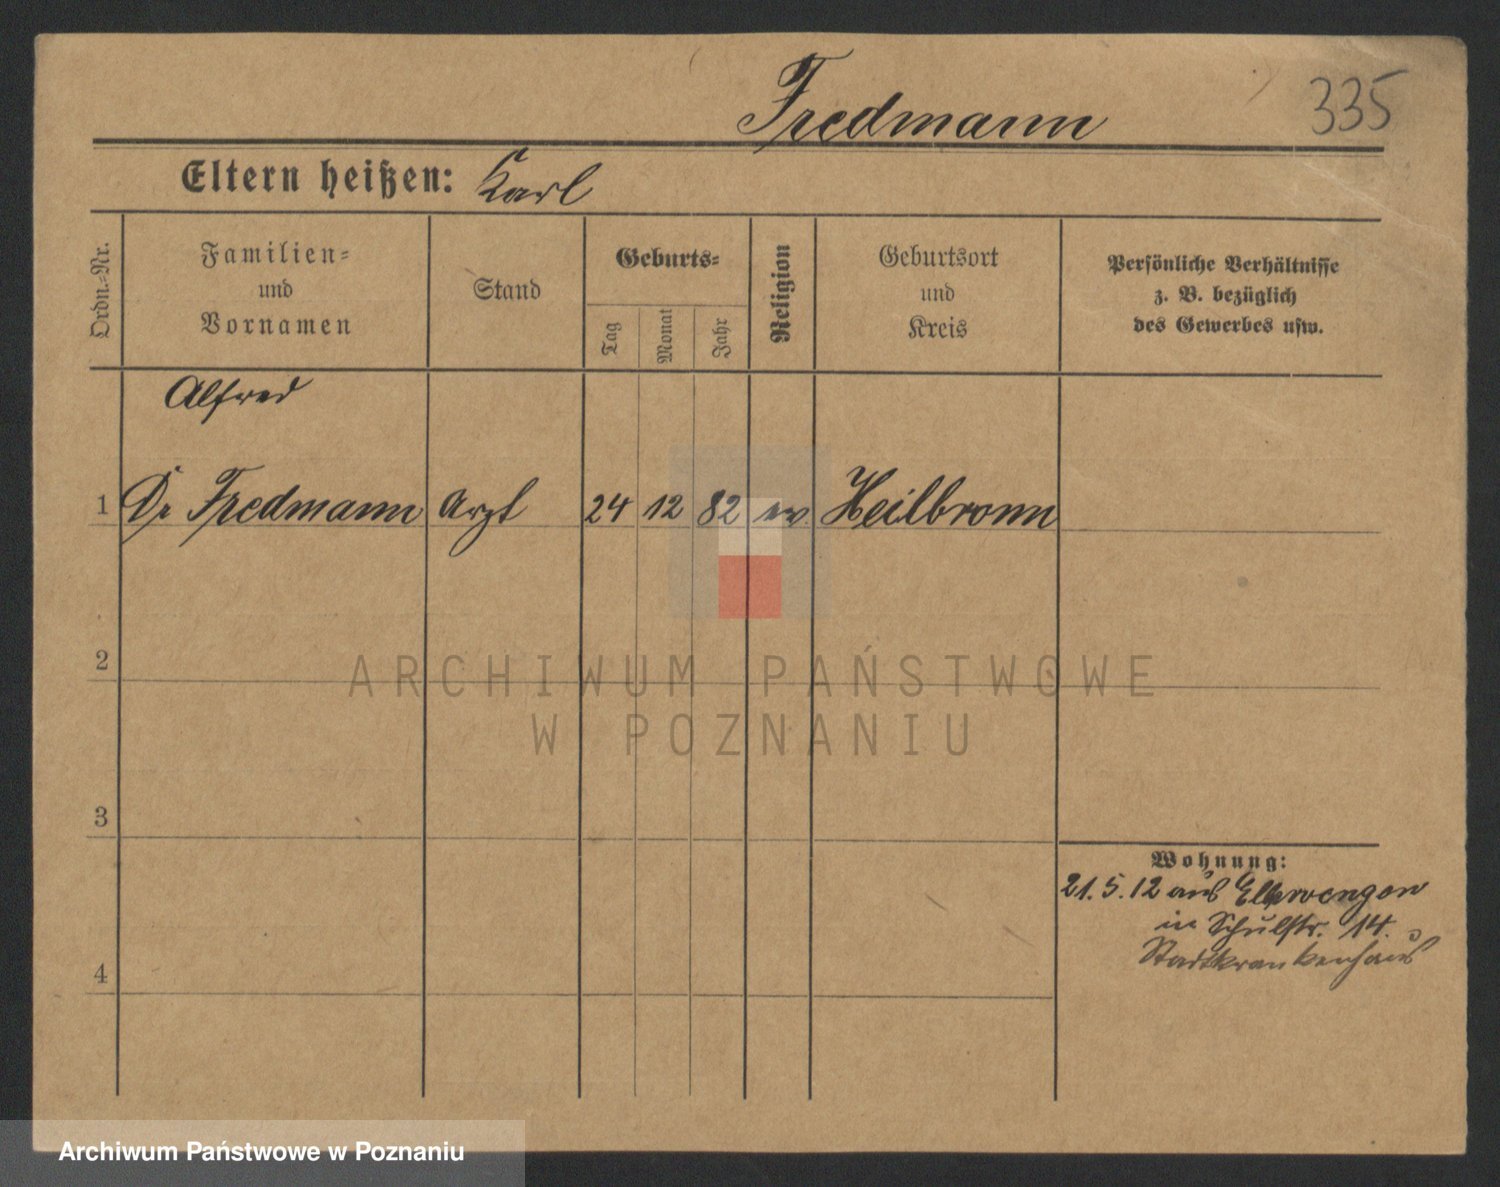 Fredmann 335
Eltern heißen: Karl
Ordn.-Nr.
Familien-
und
Vornamen
Stand
Geburts-
Tag
Monat
Jahr
Religion
Geburtsort
und
Kreis
Persönliche Verhältnisse
z. B. bezüglich
des Gewerbes usw.
Alfred
1 Dr Fredmann Arzt 24 12 82 ev. Heilbronn
2
3
4
Wohnung:
21.5.12 aus
in Schulstr. 14.
Stadtkrankenhaus
ARCHIWUM PAŃSTWOWE
W POZNANIU
Archiwum Państwowe w Poznaniu